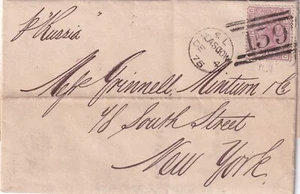 p "Russia"
GLASGOW
DE 4
75
159
Messrs Grinnell, Minturn & Co
78 South Street
New York